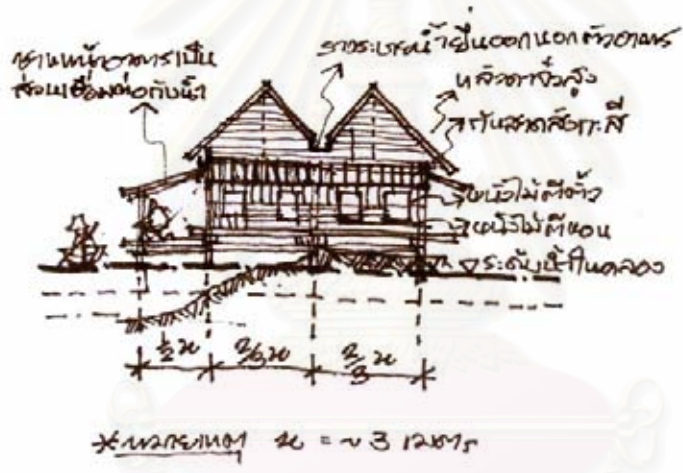 ชานหน้าอาคารเป็น
ส่วนเชื่อมต่อกับน้ำ
รางระบายน้ำยื่นออกนอกตัวอาคาร
หลังคาจั่วสูง
กันสาดสังกะสี
ผนังไม้ตีตั้ง
ผนังไม้ตีนอน
ระดับน้ำในคลอง
½ น ⅔ น ⅔ น
*หมายเหตุ น = ~ 3 เมตร